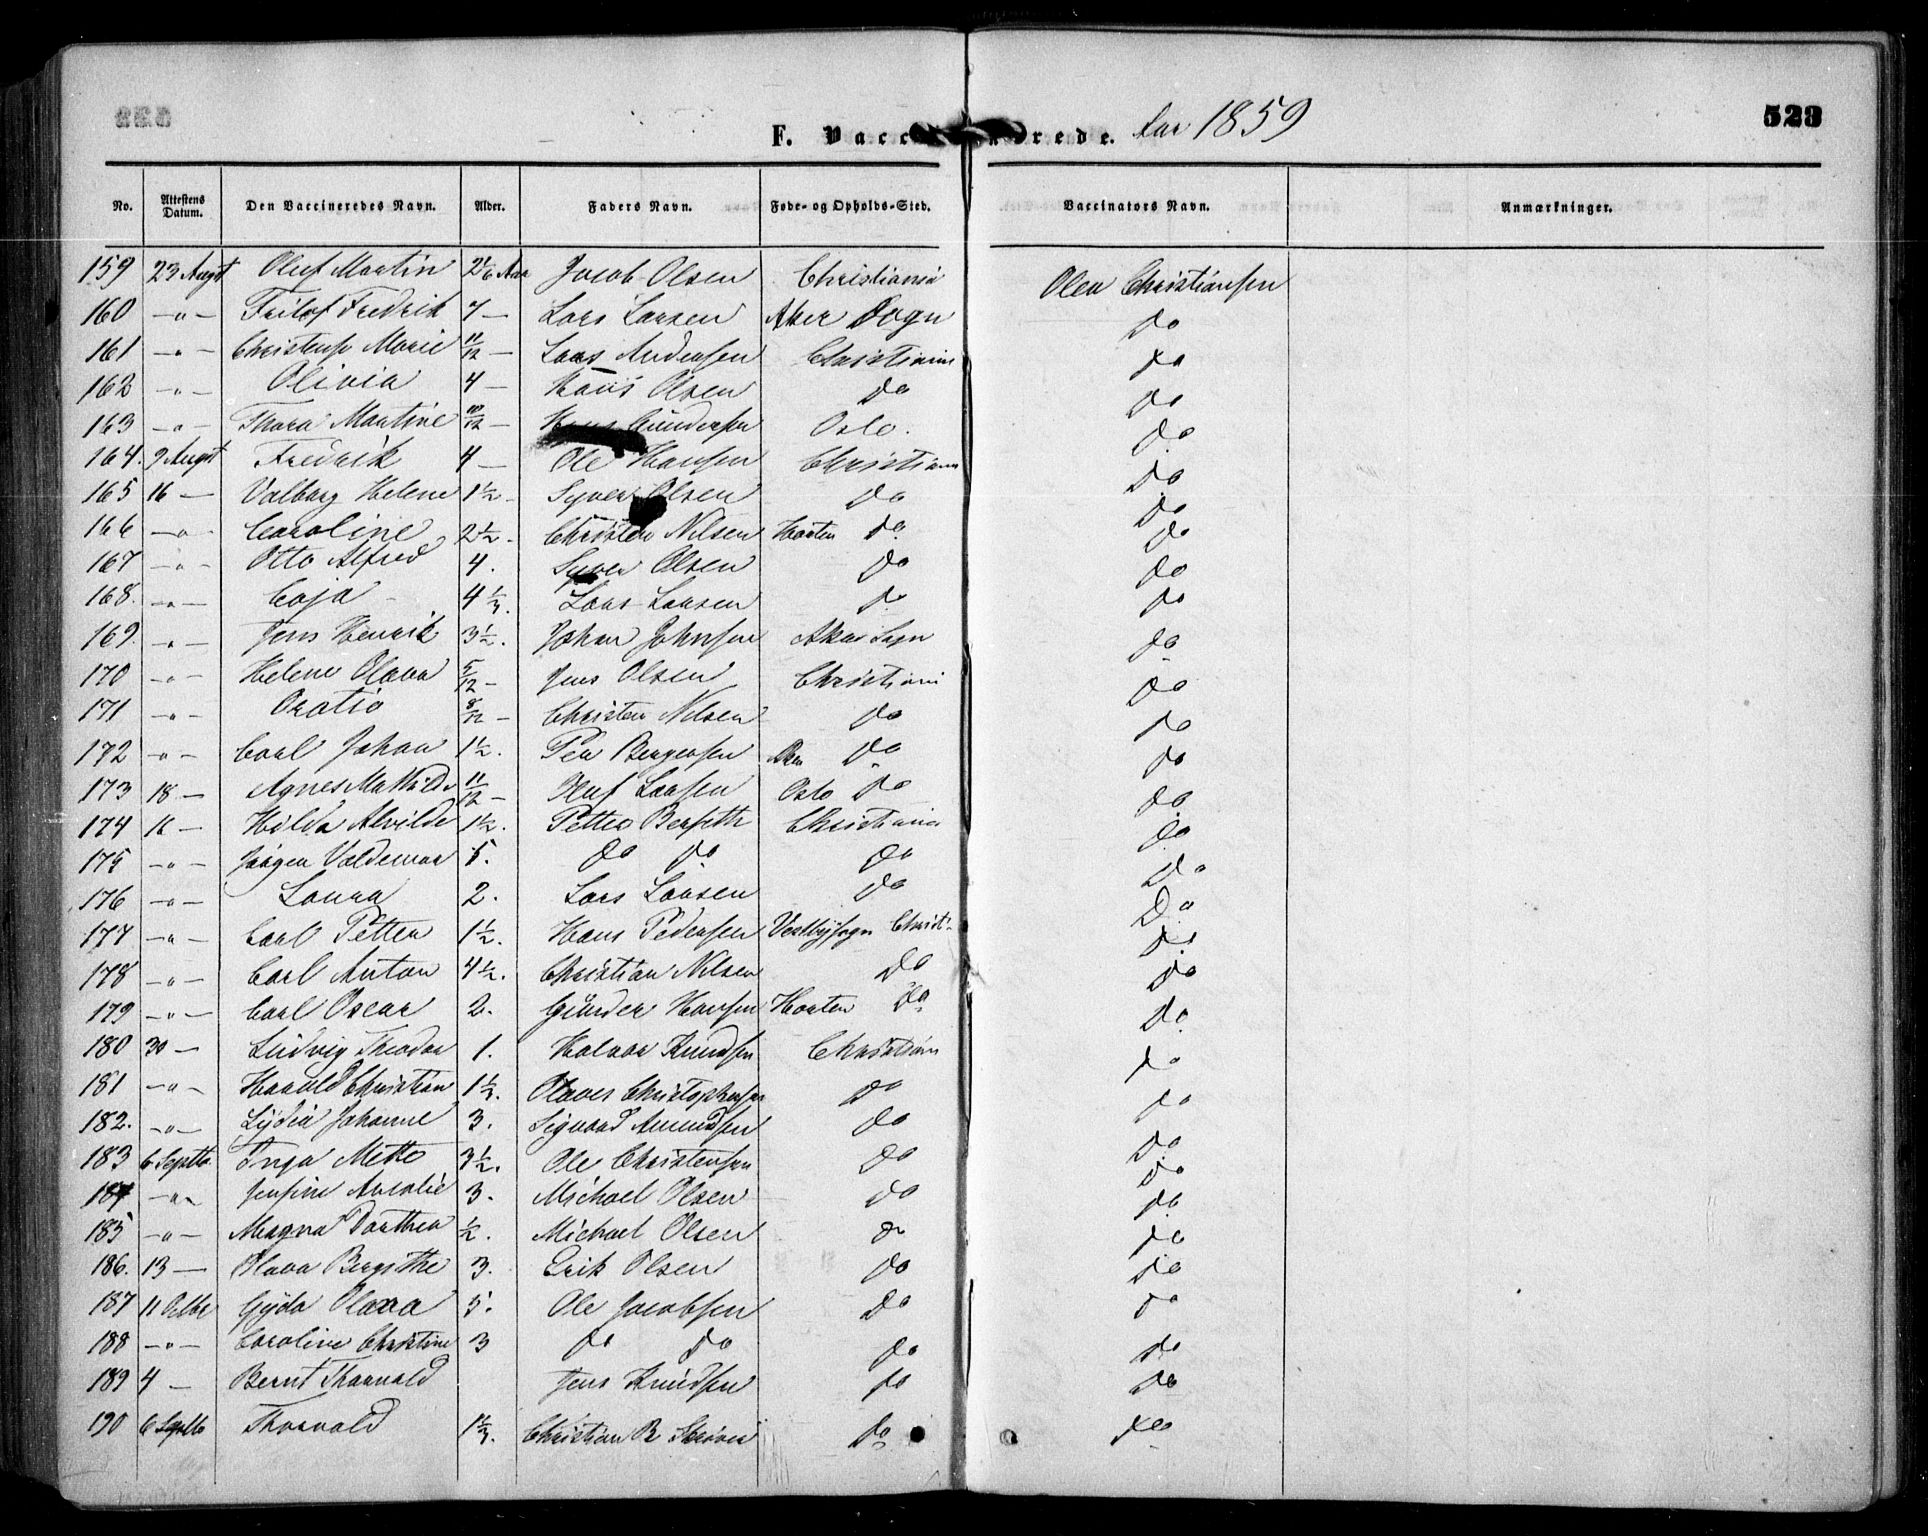 523
F. Vacc rede. 1859
No. Attestens Datum. Den Vaccineredes Navn. Alder. Faders Navn. Føde- og Opholds-Sted. Vaccinators Navn. Anmærkninger.
159 23 Augst Oluf Martin 2 1/6 Aar Jacob Olsen Christiania Olea Christiansen
160 -"- Fritof Fredrik 4 - Lars Larsen Aker Sogn Do
161 -"- Marie 11/12 - Lars Andersen Christiania Do
162 -"- Olivia 4 - Hans Olsen Do Do
163 -"- Thora Martine 10/12 - Hans Gundersen Oslo. Do
164. 9 Augst Fredrik 4 - Ole Hansen Christiania Do
165 16 - Valborg Helene 1 1/2 - Syver Olsen Do Do
166 -"- Caroline 2 1/2. Christen Nilsen Horten Do Do
167 -"- Otto Alfred 4. Syver Olsen Do Do
168. -"- Caja 4 1/3. Lars Larsen Do Do
169. -"- Jens Henrik 3 1/2. Johan Johnsen Aker Sogn Do
170 -"- Helene Olava 5/12 - Jens Olsen Christiani Do
171 -"- Oratio 8/12 - Christen Nilsen Do Do
172 -"- Carl Johan 1 1/2. Per Bergersen Do Do
173 18 - Agnes Mathilde 11/12 - Oluf Larsen Oslo Do Do
174 16 - Hilda Alvilde 1 1/2. Petter Berseth Christiania Do
175 -"- Jørgen Valdemar 5. Do Do Do Do
176 -"- Laura 2. Lars Larsen Do Do
177 -"- Carl Petter 1 1/2. Hans Pedersen Vestbysogn Christ Do
178 -"- Carl Anton 4 1/2. Christian Nilsen Do Do
179 -"- Carl Oscar 2. Günder Hansen Horten Do Do
180 30 - Ludvig Theodor 1. Halvor Knudsen Christian Do
181 -"- Harald Christian 1 1/3. Olaves Christophersen Do Do
182. -"- Lydia Johanne 3. Sigvard Amundsen Do Do
183 6 Septbr Inga Mette 3 1/2. Ole Christensen Do Do
184 -"- Jensine Amalie 3. Michael Olsen Do Do
185 -"- Magna Dorthea 1/2. Michael Olsen Do Do
186. 13 - Olava Bergithe 3. Erik Olsen Do Do
187 11 Octbr Gyda Olava 5. Ole Jacobsen Do Do
188 -"- Caroline Christine 3 Do Do Do Do
189 4 - Bernt Thorvald Jens Knudsen Do Do
190 6 Septbr Thorvald 1 1/3. Christian B Do Do